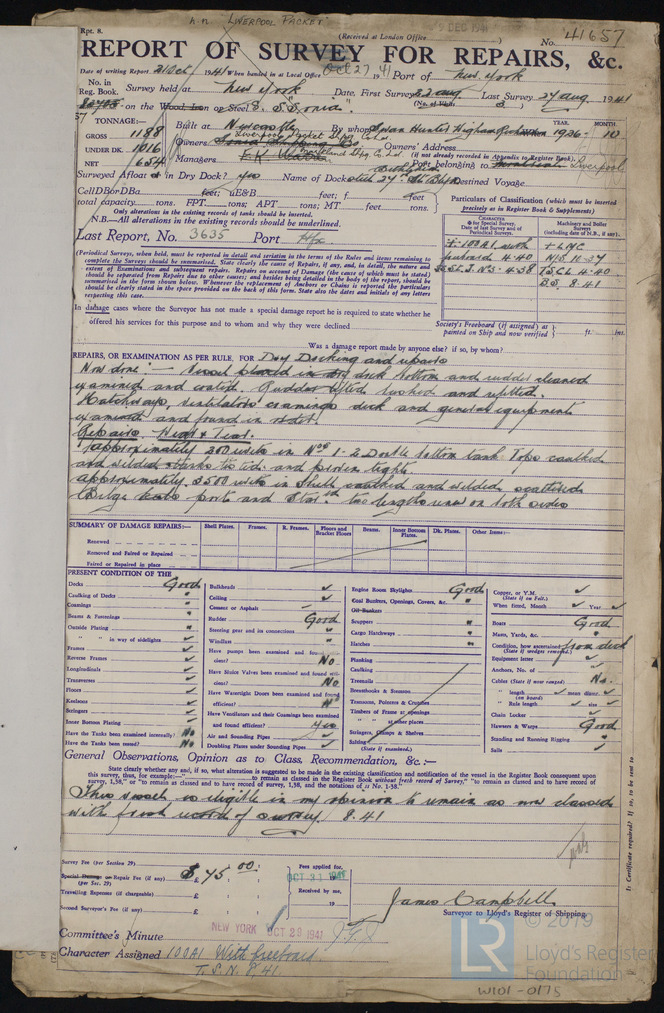 n.n LIVERPOOL PACKET
Rpt. 8.
(Received at London Office DEC 1941)
No. 41657
REPORT OF SURVEY FOR REPAIRS, &c.
Date of writing Report 21 Oct 1941 When handed in at Local Office Oct 27 1941 Port of New York
No. in Reg. Book. Survey held at New York Date, First Survey 22 aug Last Survey 27 aug 1941
on the Wood, Iron or Steel S.S "Sonia"
TONNAGE:—
GROSS 1188
UNDER DK. 1016
NET 654
Built at Newcastle By whom Swan Hunter Wigham Richardson YEAR. 1926 MONTH. 10
Owners Liverpool Packet Stpg Co Ld. Owners' Address
(if not already recorded in Appendix to Register Book)
Managers Port belonging to Liverpool
Surveyed Afloat or in Dry Dock? yes Name of Dock Bethlehem 27th St Bklyn Destined Voyage
Cell DB or DBa feet; uE&B feet; f feet
total capacity tons. FPT tons; APT tons; MT feet tons.
Only alterations in the existing records of tanks should be inserted.
N.B.—All alterations in the existing records should be underlined.
Last Report, No. 3635 Port Hfx
Particulars of Classification (which must be inserted precisely as in Register Book & Supplements)
CHARACTER for Special Survey. Date of last Survey and of Periodical Surveys.
Machinery and Boiler Surveys (including date of N.B., if any).
+ 100A1 with
freeboard 4.40
S.S. No 3 - 4.38
+ LMC
TSCL 4.40
B.S. 8.41
(Periodical Surveys, when held, must be reported in detail and seriatim in the terms of the Rules and items remaining to complete the Surveys should be summarised. State clearly the cause of Repairs, if any, and, in detail, the nature and extent of Examinations and subsequent repairs. Repairs on account of Damage (the cause of which must be stated) should be separated from Repairs due to other causes; and besides being detailed in the body of the report, should be summarised in the form shown below. Whenever the replacement of Anchors or Chains is reported the particulars should be clearly stated in the space provided on the back of this form. State also the dates and initials of any letters respecting this case.
In damage cases where the Surveyor has not made a special damage report he is required to state whether he offered his services for this purpose and to whom and why they were declined
Society's Freeboard (if assigned) as painted on Ship and now verified ft. ins.
Was a damage report made by anyone else? if so, by whom?
REPAIRS, OR EXAMINATION AS PER RULE, FOR Dry Docking and repairs
Now done:— Vessel placed in dry dock bottom and rudder cleaned
examined and coated. Rudder lifted bushed and refitted.
Hatchways, ventilators coamings deck and general equipments
examined and found in order.
Repairs Wear & Tear.
Approximately 200 rivets in Nos 1-2 Double bottom tank Tops caulked
and welded tanks tested and proven tight.
Approximately 3500 rivets in Shell caulked and welded scattered
Bilge keels port and Starbd two lengths new on both sides
SUMMARY OF DAMAGE REPAIRS:—
Shell Plates. Frames. R. Frames. Floors and Bracket Floors Beams. Inner Bottom Plates. Dk. Plates. Other Items:—
Renewed
Removed and Faired or Repaired
Faired or Repaired in place
PRESENT CONDITION OF THE
Decks Good
Caulking of Decks "
Coamings "
Beams & Fastenings "
Outside Plating "
" " in way of sidelights ✓
Frames ✓
Reverse Frames ✓
Longitudinals ✓
Transverses ✓
Floors ✓
Keelsons ✓
Stringers ✓
Inner Bottom Plating ✓
Have the Tanks been examined internally? No
Have the Tanks been tested? No
Bulkheads ✓
Ceiling ✓
Cement or Asphalt
Rudder Good
Steering gear and its connections "
Windlass "
Have pumps been examined and found efficient? No
Have Sluice Valves been examined and found efficient? No
Have Watertight Doors been examined and found efficient? No
Have Ventilators and their Coamings been examined and found efficient? yes
Air and Sounding Pipes ✓
Doubling Plates under Sounding Pipes ✓
Engine Room Skylights Good
Coal Bunkers, Openings, Covers, &c. "
Oil Bunkers
Scuppers "
Cargo Hatchways "
Hatches "
Planking
Caulking
Treenails
Breasthooks & Sternson
Transoms, Pointers & Crutches
Timbers of Frame at openings
" " at other places
Stringers, Clamps & Shelves
Salting
(State if examined.)
Copper, or Y.M. ✓
(State if on Felt.)
When fitted, Month ✓ Year ✓
Boats Good
Masts, Yards, &c. "
Condition, how ascertained from deck
(State if wedges removed.)
Equipment letter ✓
Anchors, No. of ✓
Cables (State if now ranged) No.
" length ✓ mean diamr. ✓
(on board)
" Rule length ✓ size ✓
Chain Locker ✓
Hawsers & Warps Good
Standing and Running Rigging "
Sails ✓
General Observations, Opinion as to Class, Recommendation, &c. :—
State clearly whether any and, if so, what alteration is suggested to be made in the existing classification and notification of the vessel in the Register Book consequent upon this survey, thus, for example:—
This vessel is eligible in my opinion to remain as now classed
with fresh record of survey 8.41
Survey Fee (per Section 29)
Special Damage or Repair Fee (if any) (per Sec. 29) $ 45.00
Travelling Expenses (if chargeable) £
Second Surveyor's Fee (if any) £
Fees applied for,
OCT 21 1941
Received by me,
19
James Campbell
Surveyor to Lloyd's Register of Shipping.
Committee's Minute NEW YORK OCT 29 1941
Character Assigned 100A1 With freeboard
T.S.N. 8.41
Is Certificate required? If so, to be sent to
© 2019
LR
Lloyd's Register
Foundation
W101-0175